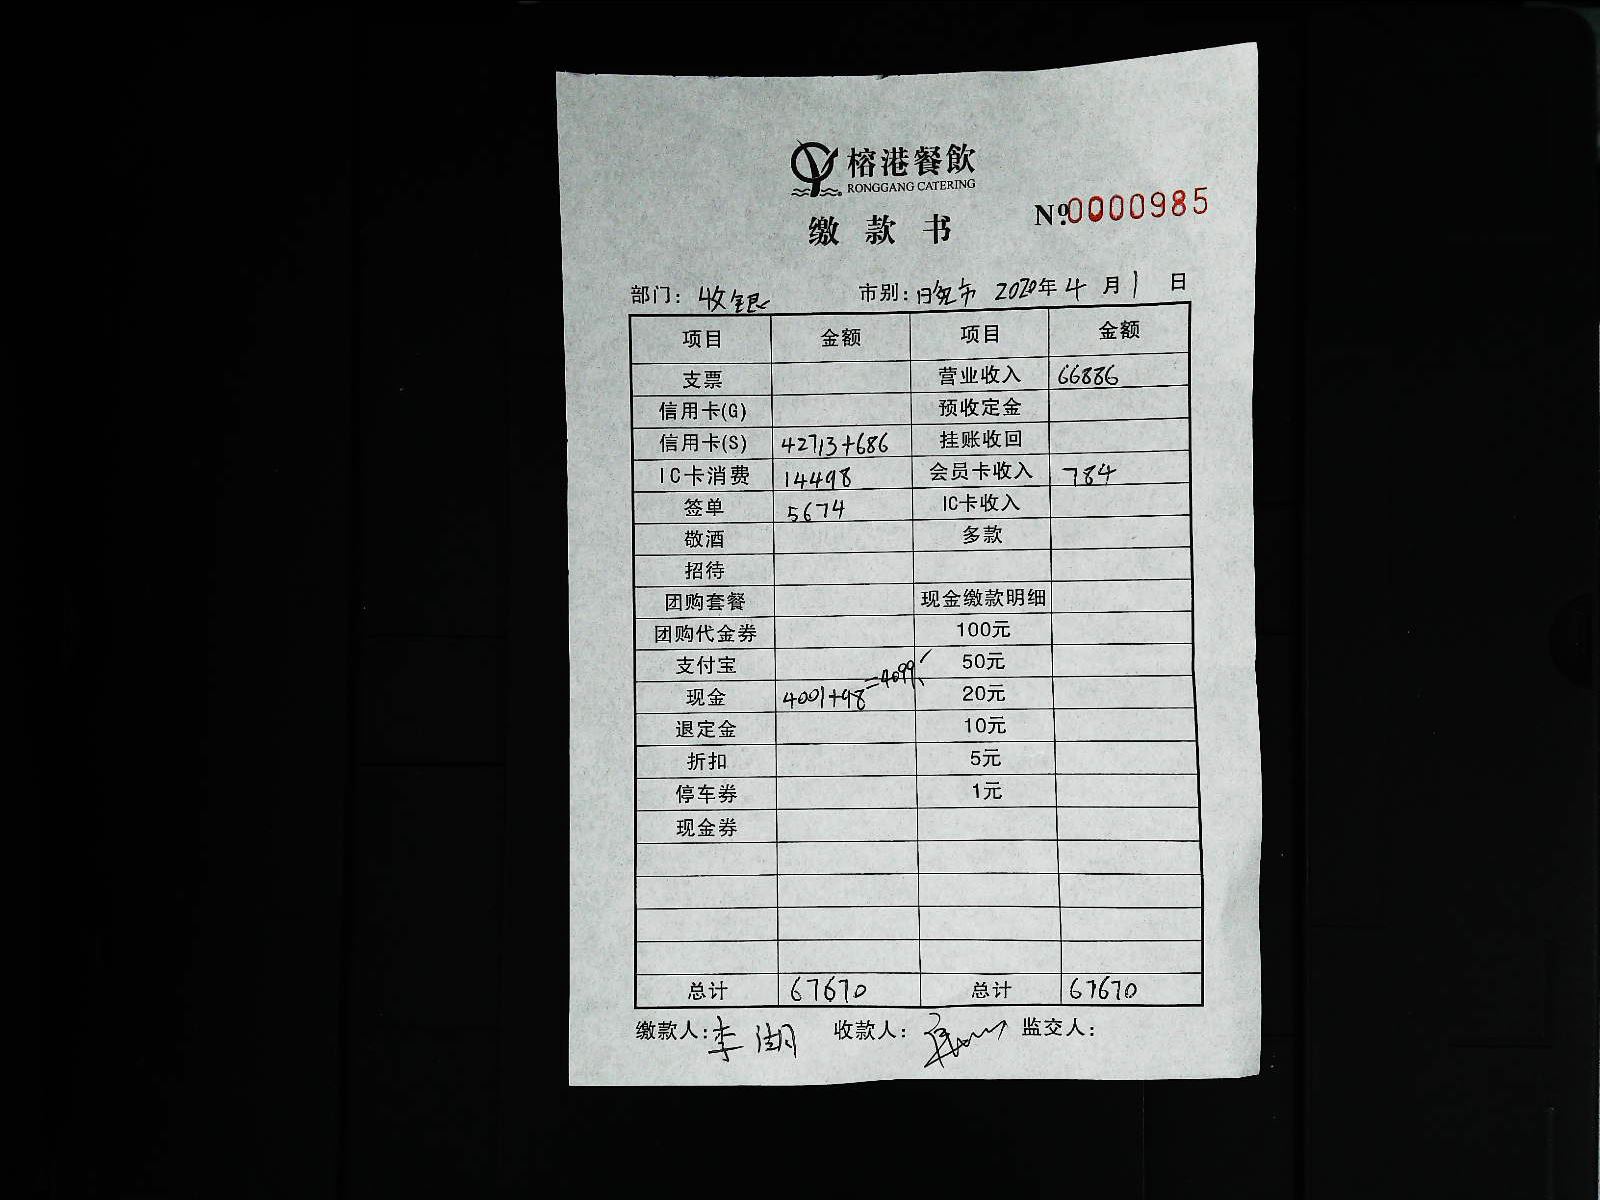 榕港餐飲
RONGGANG CATERING
缴款书
Nº.0000985
部门：收银 市别：晚市 2020年4月1日
项目 金额 项目 金额
支票 营业收入 66886
信用卡(G) 预收定金
信用卡(S) 42713+686 挂账收回
IC卡消费 14498 会员卡收入 784
签单 5674 IC卡收入
敬酒 多款
招待
团购套餐 现金缴款明细
团购代金券 100元
支付宝 50元
现金 4001+98=4099 20元
退定金 10元
折扣 5元
停车券 1元
现金券
总计 67670 总计 67670
缴款人：李湖 收款人： 监交人：